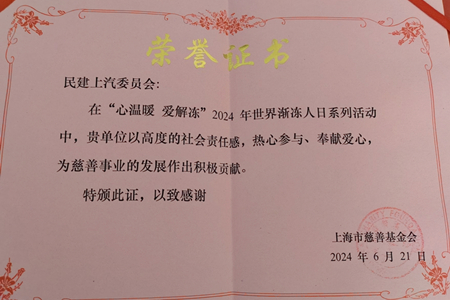 荣誉证书
民建上汽委员会:
在“心温暖 爱解冻”2024 年世界渐冻人日系列活动
中，贵单位以高度的社会责任感，热心参与、奉献爱心，
为慈善事业的发展作出积极贡献。
特颁此证，以致感谢
上海市慈善基金会
2024 年 6 月 21 日